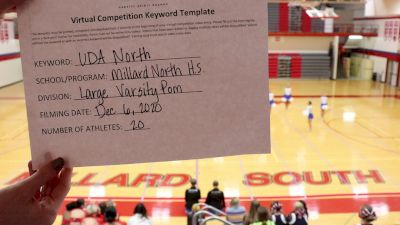 Virtual Competition Keyword Template
KEYWORD: UDA North
SCHOOL/PROGRAM: Millard North H.S.
DIVISION: Large Varsity Pom
FILMING DATE: Dec 6, 2020
NUMBER OF ATHLETES: 20
MILLARD SOUTH